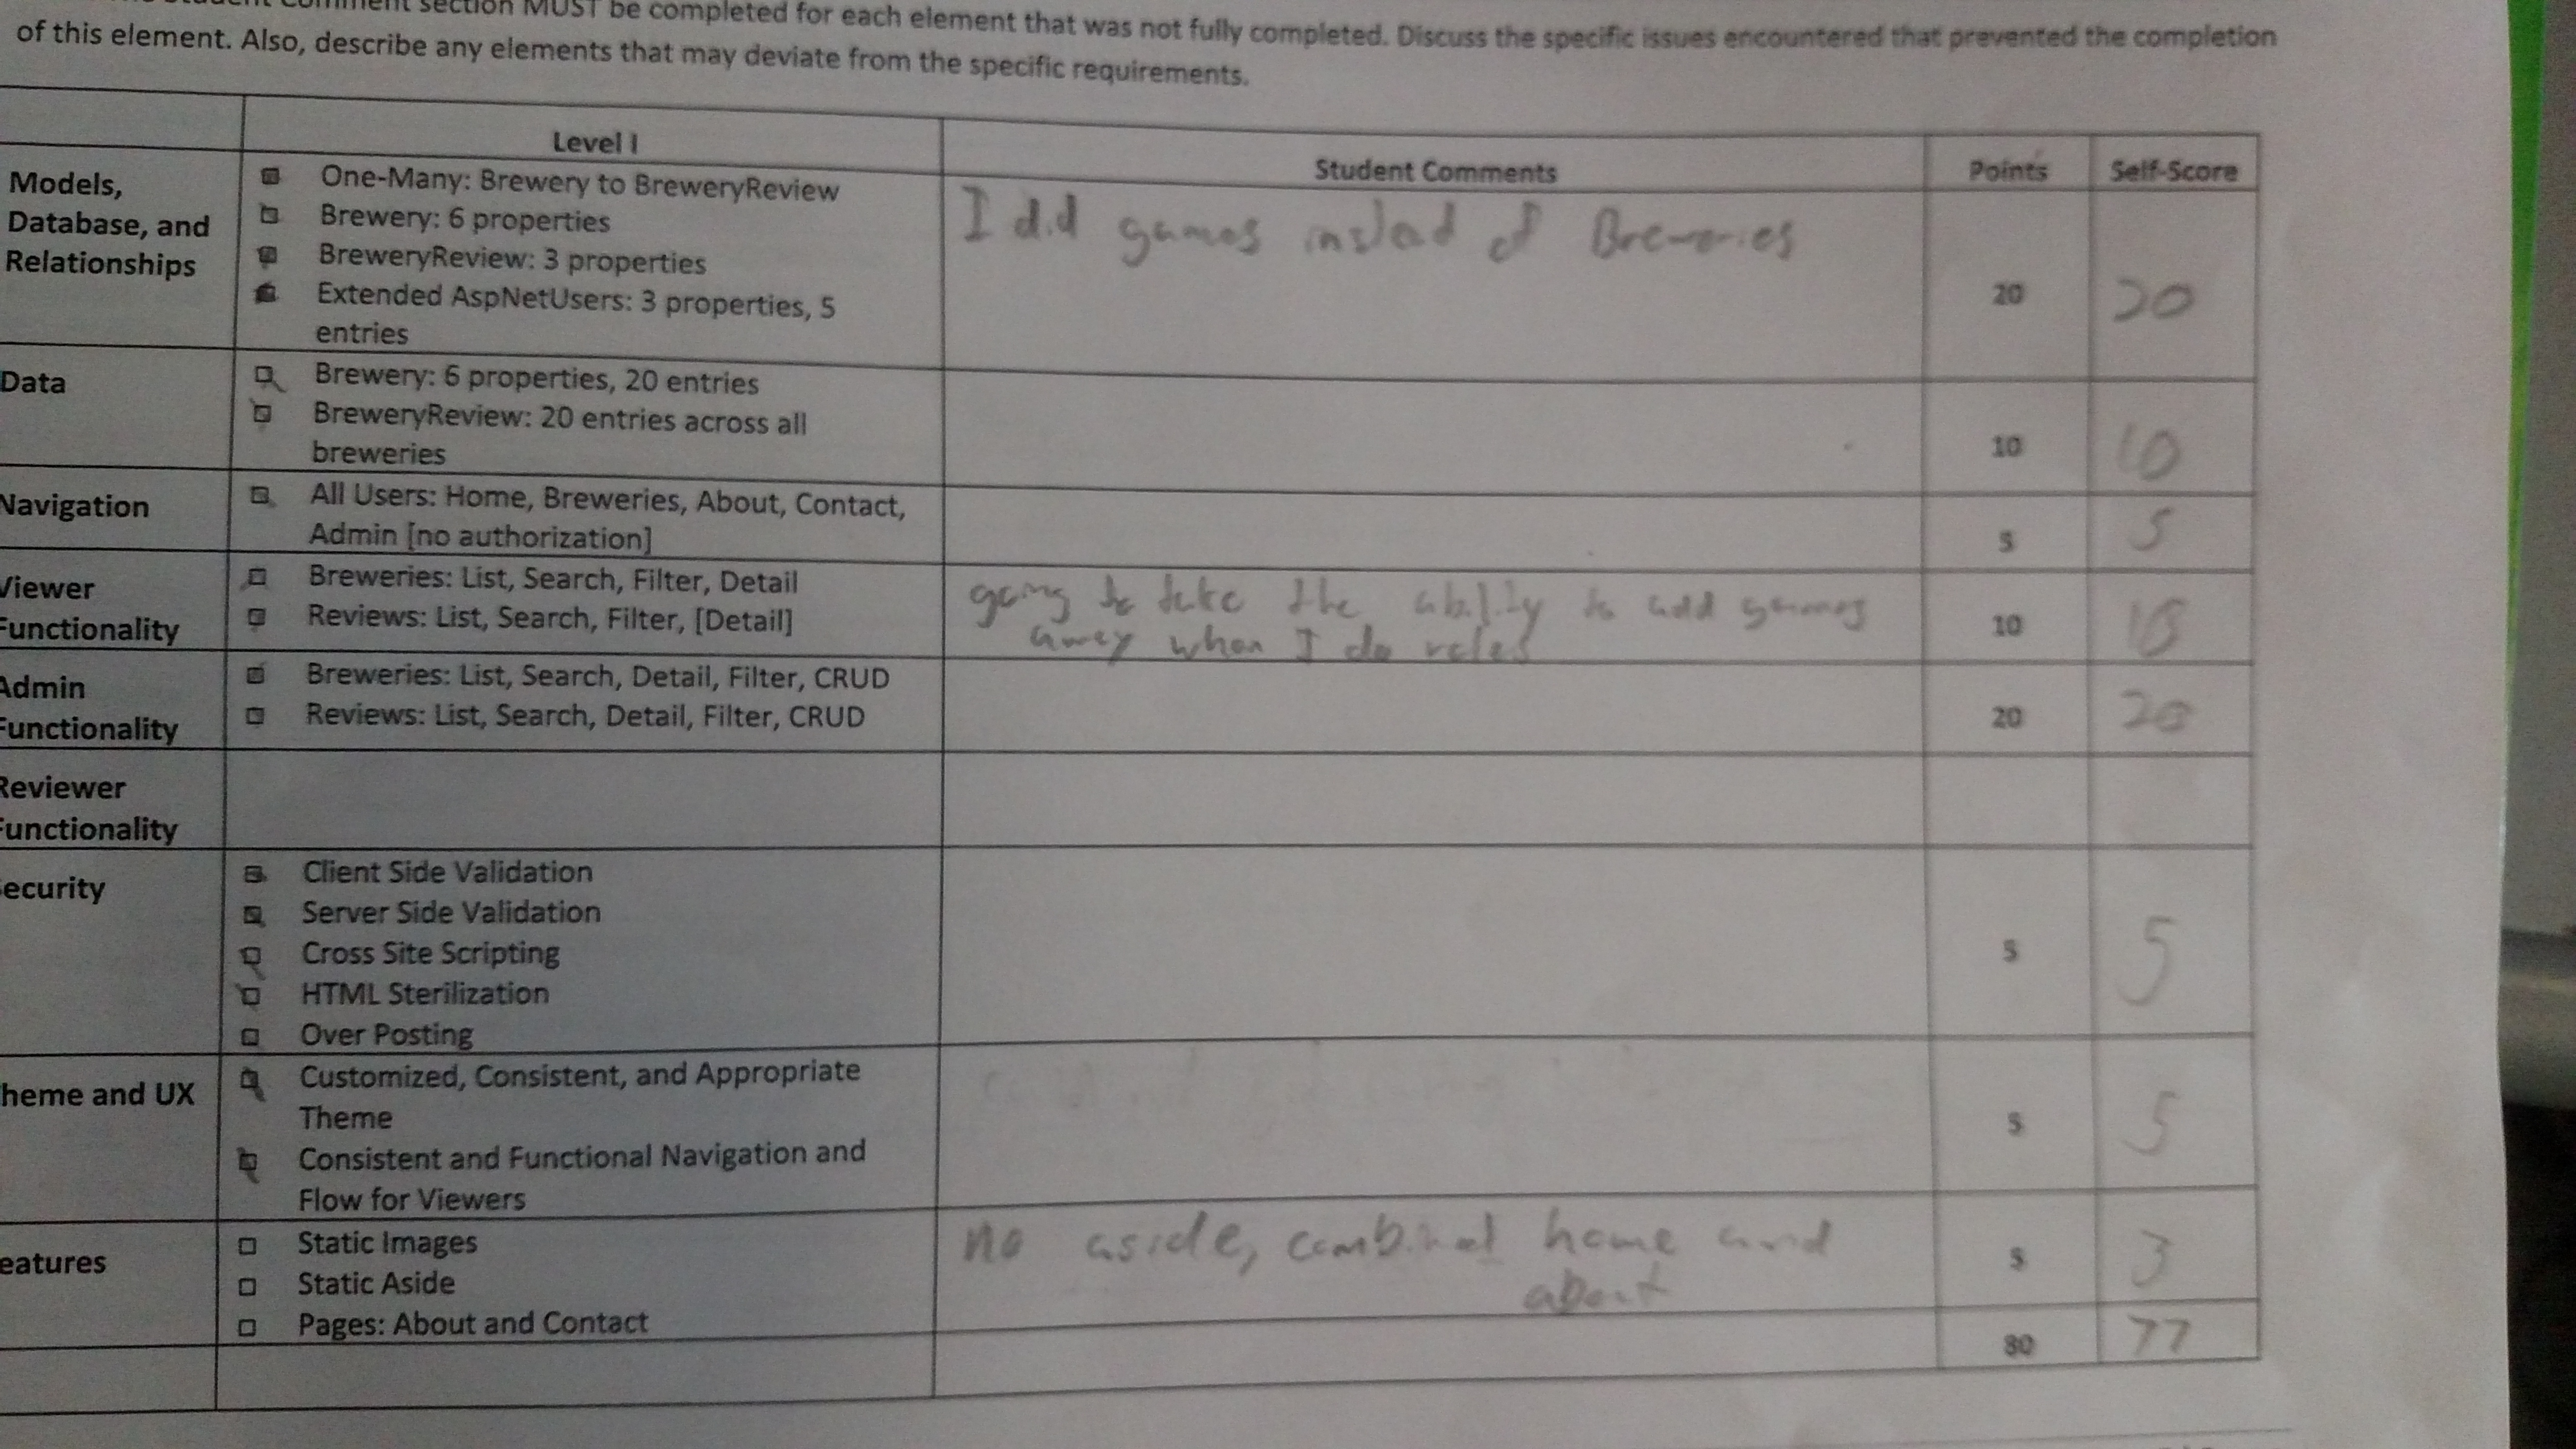 Comment section MUST be completed for each element that was not fully completed. Discuss the specific issues encountered that prevented the completion
of this element. Also, describe any elements that may deviate from the specific requirements.
Level I
Student Comments
Points
Self-Score
Models,
Database, and
Relationships
One-Many: Brewery to BreweryReview
Brewery: 6 properties
BreweryReview: 3 properties
Extended AspNetUsers: 3 properties, 5
entries
I did games instead of Breweries
20
20
Data
Brewery: 6 properties, 20 entries
BreweryReview: 20 entries across all
breweries
10
10
Navigation
All Users: Home, Breweries, About, Contact,
Admin [no authorization]
5
5
Viewer
Functionality
Breweries: List, Search, Filter, Detail
Reviews: List, Search, Filter, [Detail]
going to take the ability to add games
away when I do roles
10
Admin
Functionality
Breweries: List, Search, Detail, Filter, CRUD
Reviews: List, Search, Detail, Filter, CRUD
20
20
Reviewer
Functionality
ecurity
Client Side Validation
Server Side Validation
Cross Site Scripting
HTML Sterilization
Over Posting
5
5
heme and UX
Customized, Consistent, and Appropriate
Theme
Consistent and Functional Navigation and
Flow for Viewers
5
5
eatures
Static Images
Static Aside
Pages: About and Contact
no aside, combined home and
about
5
3
80
77